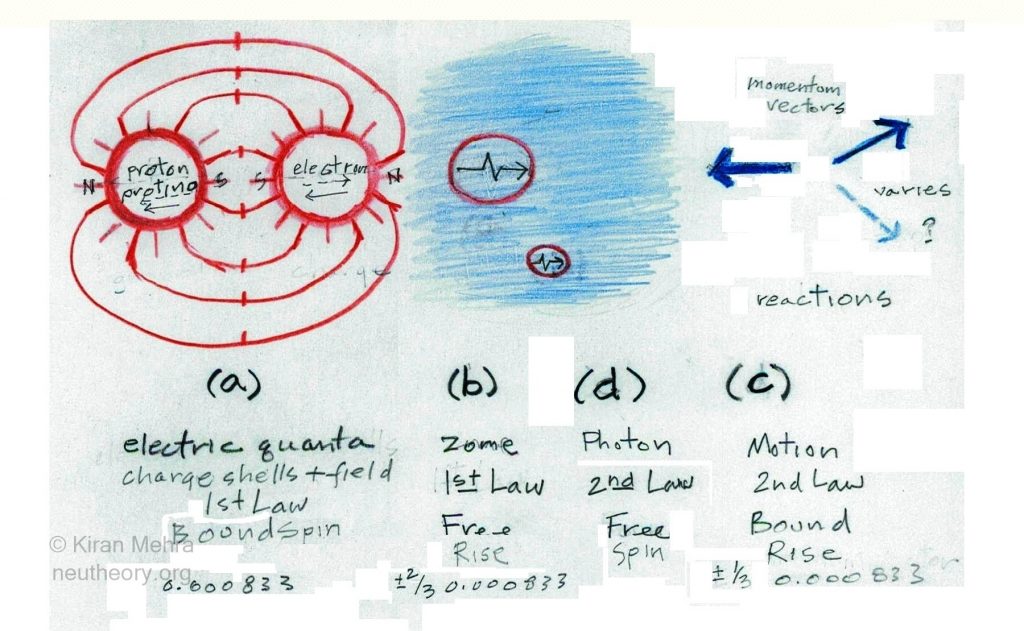 momentum
vectors
proton
proting
N
S
S
electron
N
varies
?
reactions
(a)
(b)
(d)
(c)
electric quanta
charge shells + field
1st Law
Bound Spin
0.000833
Zome
1st Law
Free
Rise
±2/3 0.000833
Photon
2nd Law
Free
Spin
Motion
2nd Law
Bound
Rise
± 1/3 0.000833
© Kiran Mehra
neutheory.org